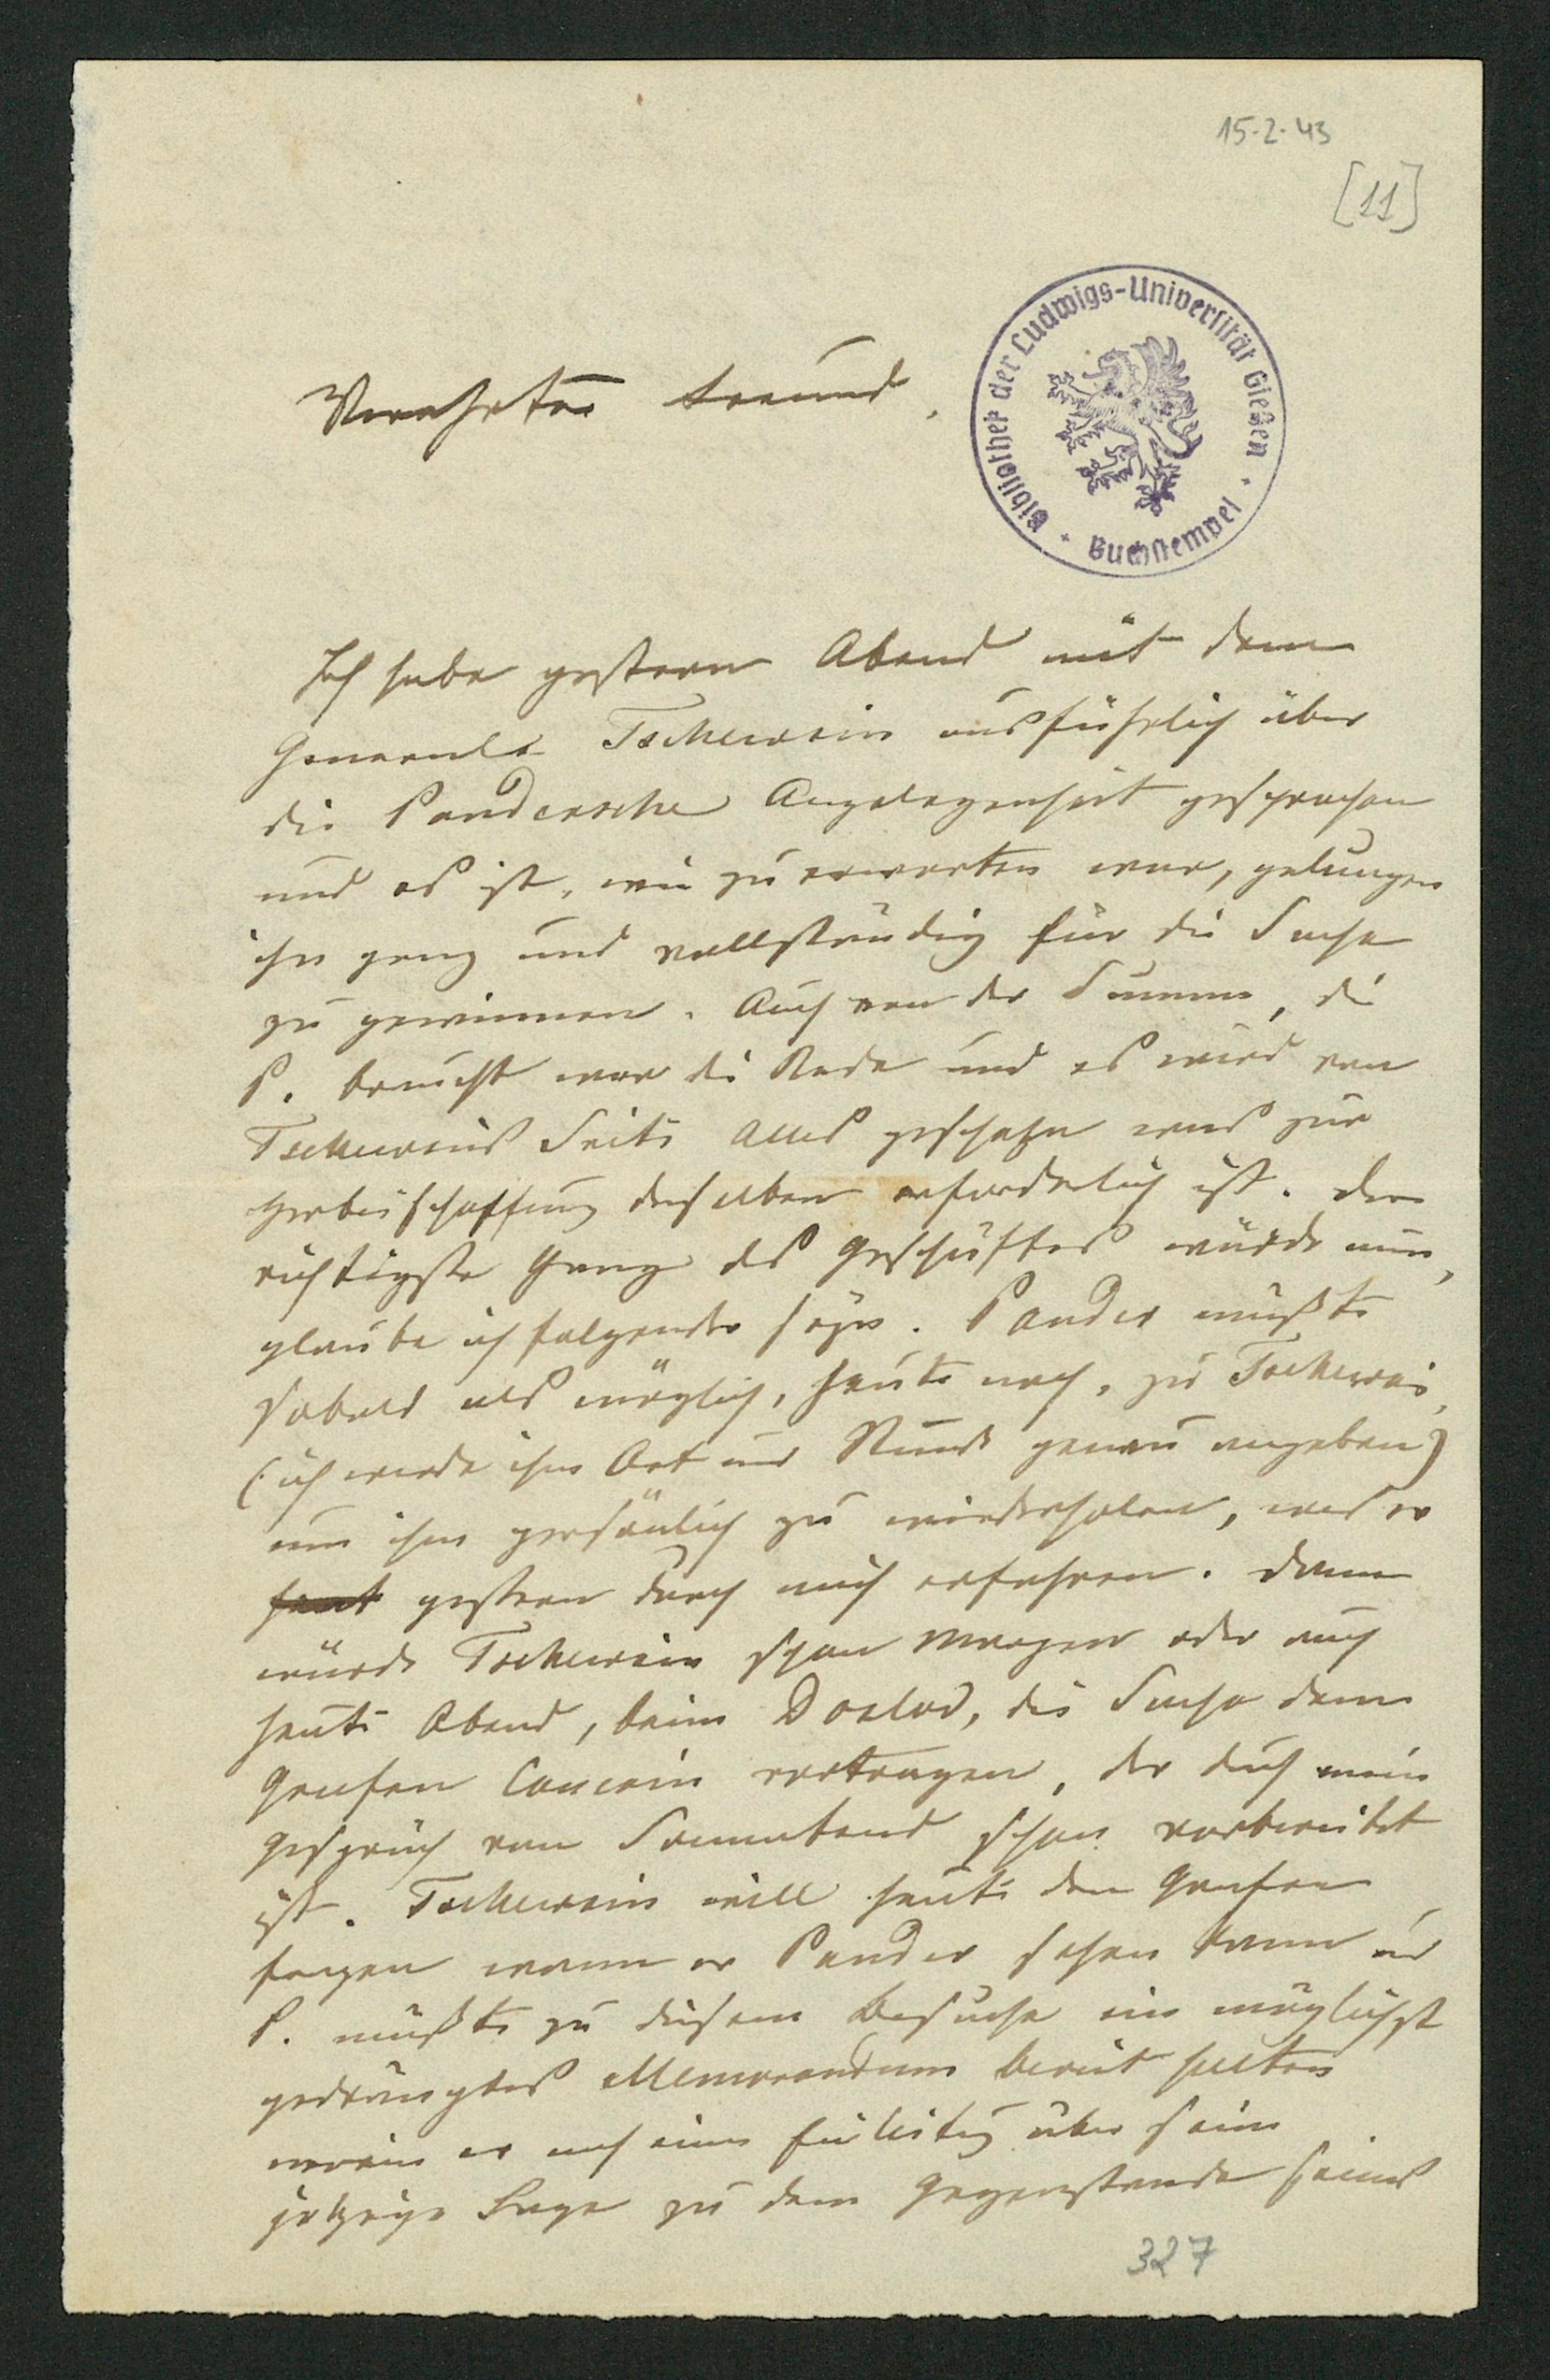 15.2.43
[11]
Bibliothek der Ludwigs-Universität Gießen
Buchstempel
Verehrter Freund,
Ich habe gestern Abend mit dem
General Tschewkin ausführlich über
die Pandersche Angelegenheit gesprochen
und es ist, wie zu erwarten war, gelungen
ihn ganz und vollständig für die Sache
zu gewinnen. Auch von der Summe, die
P. braucht war die Rede und es wird von
Tschewkins Seite Alles geschehn was zur
Herbeischaffung derselben erforderlich ist. Der
richtigste Gang des Geschäftes würde nun,
glaube ich folgender seyn. Pander müßte
sobald als möglich, heute noch, zu Tschewkin,
(ich werde ihm Ort und Stunde genau angeben)
um ihm persönlich zu wiederholen, was er
heut gestern durch mich erfahren. Dann
würde Tschewkin schon Morgen oder auch
heute Abend, beim Doclad, die Sache dem
Grafen Cancrin vortragen, der durch mein
Gespräch vom Sonnabend schon vorbereitet
ist. Tschewkin will heute den Grafen
fragen wann er Pander sehen kann und
P. müßte zu diesem Besuche ein möglichst
gedrängtes Memorandum bereit halten
worin er nach einer Einleitung über seine
jetzige Lage zu dem Gegenstande seines
327